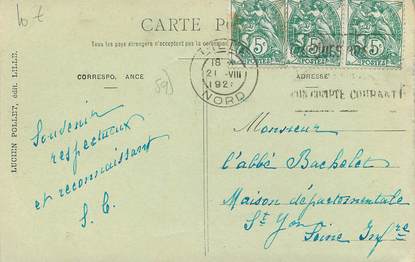 10 €
CARTE PO
Tous les pays étrangers n'acceptent pas la correspondance
CORRESPO ANCE
ADRESSE
59)
LILLE
18
21 VIII
192
NORD
5c 5c 5c
POSTES
COMPTE COURANT
LUCIEN POLLET, édit. LILLE.
Souvenir
respectueux
et reconnaissant
S. C.
Monsieur
l'abbé Bachelet
Maison départementale
St Yon
Seine Infre